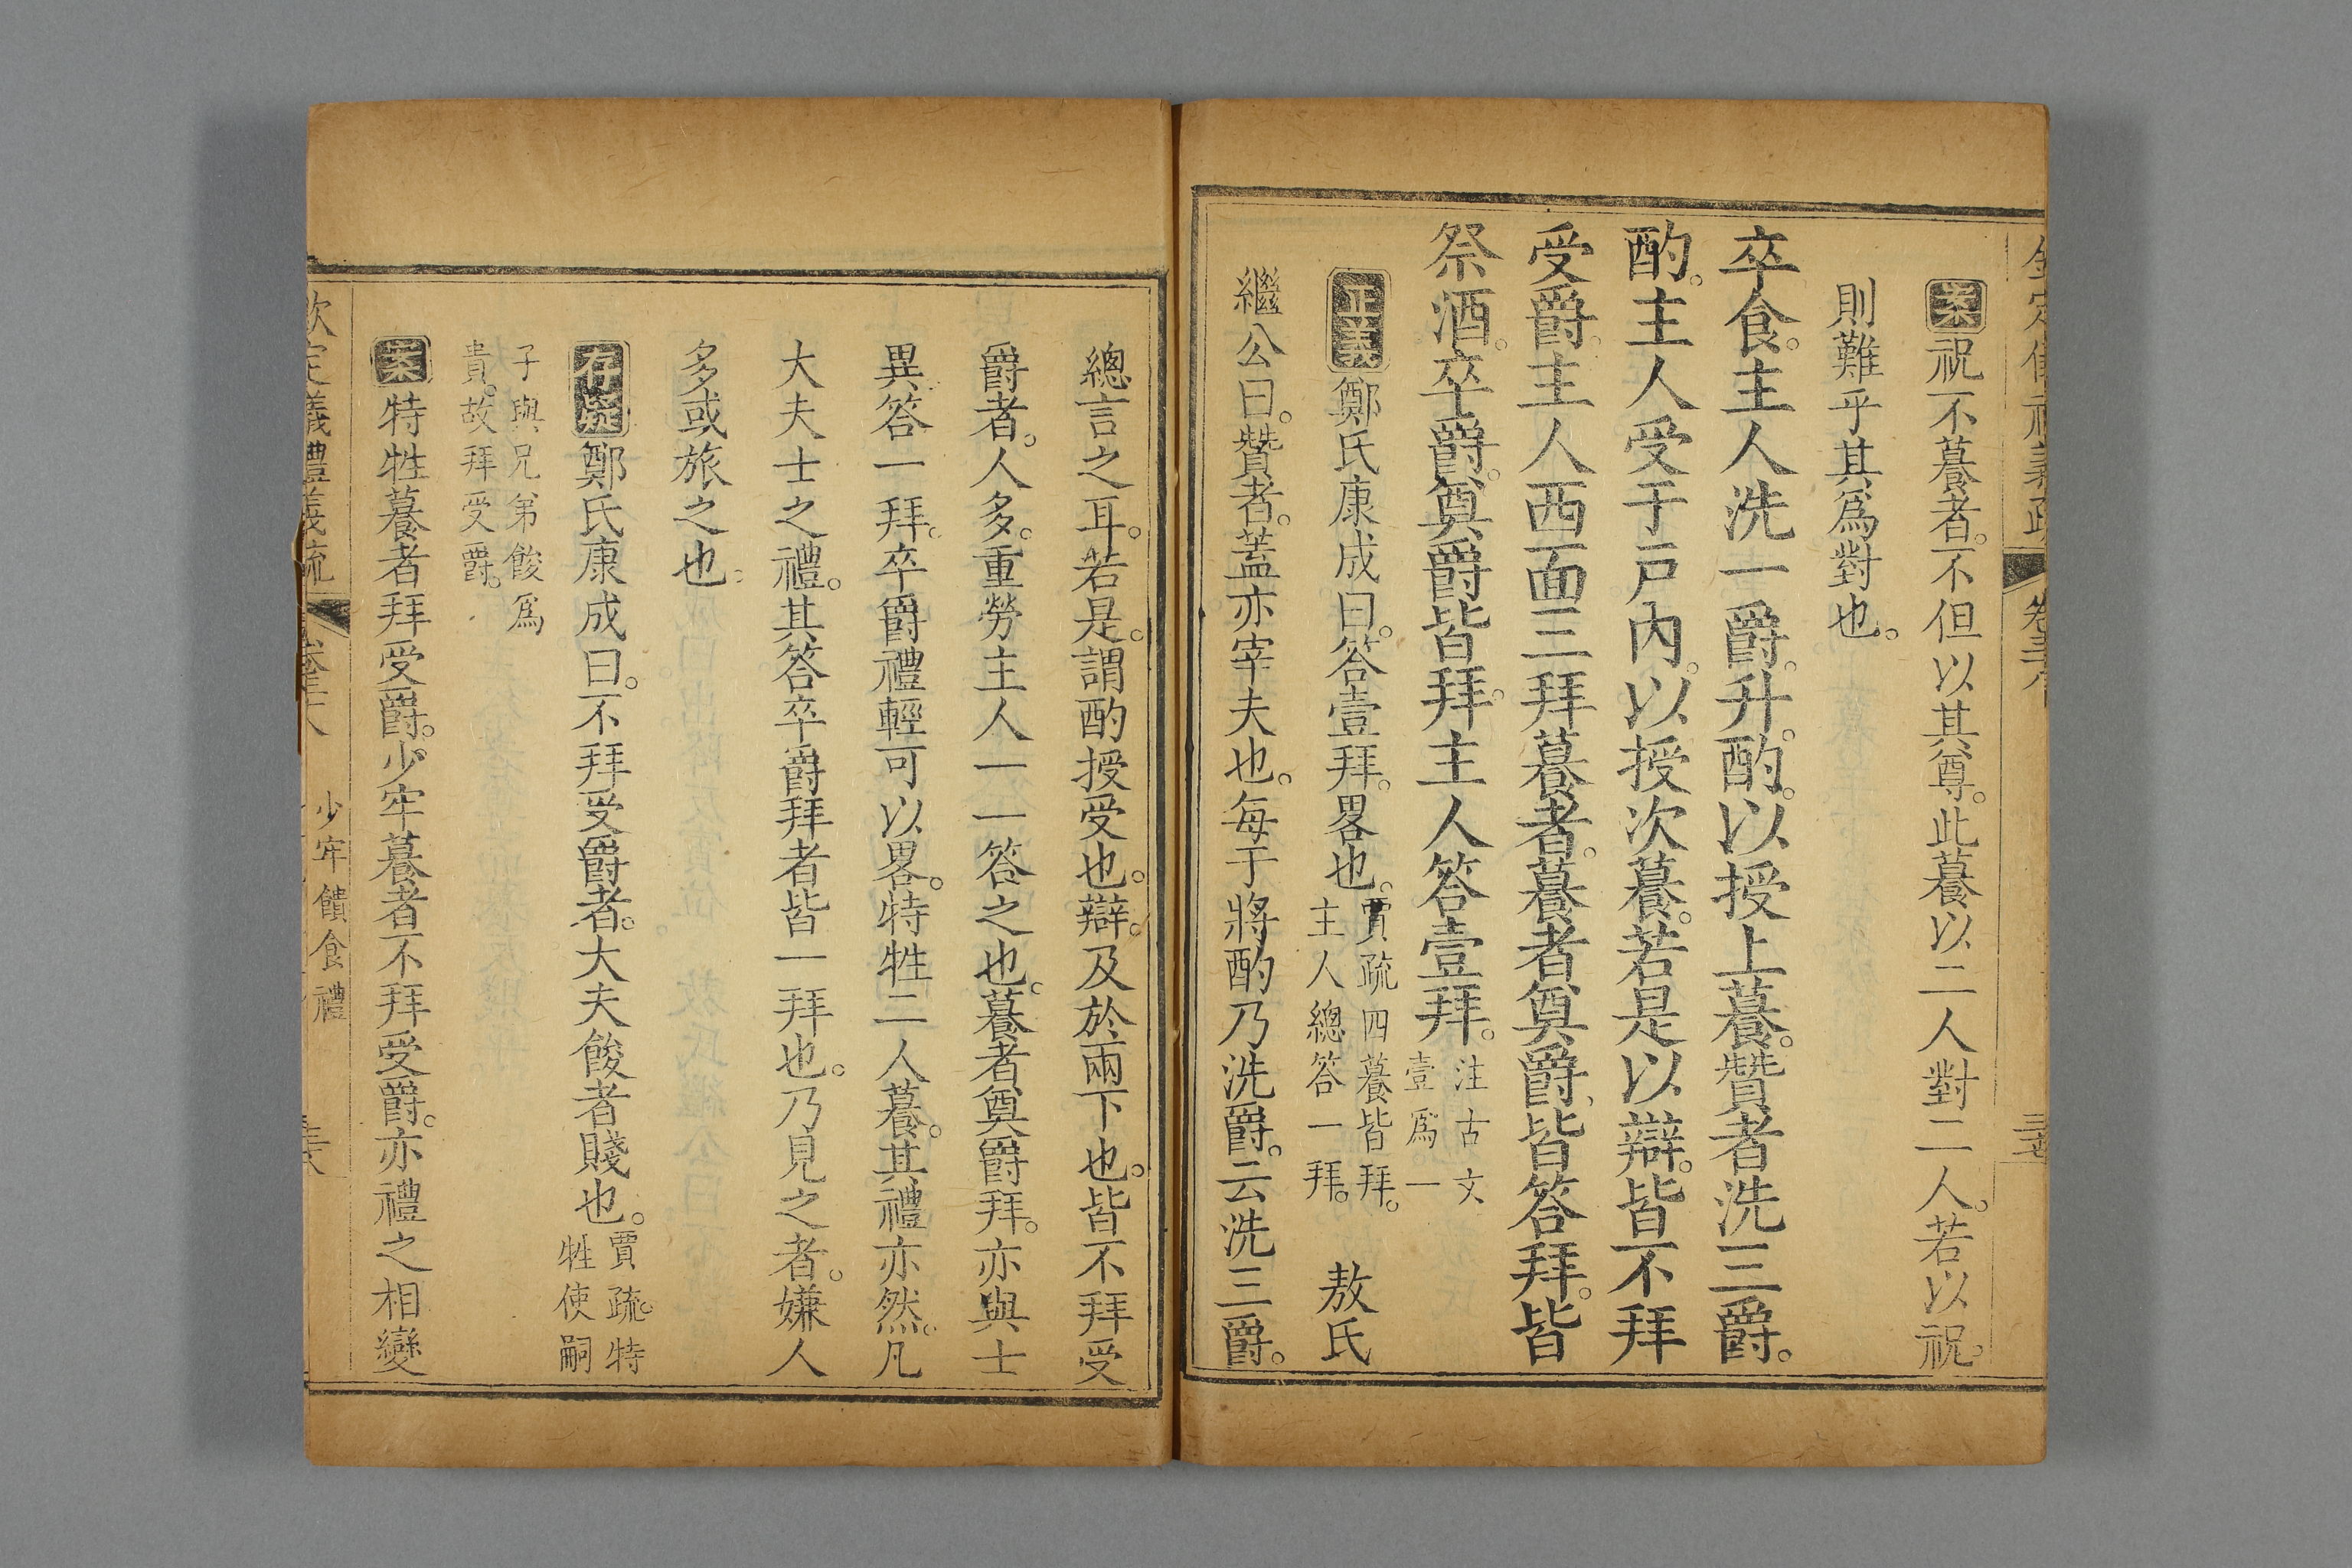 欽定儀禮義疏 卷三十八
案祝不䬸者。不但以其尊。此䬸以二人對二人。若以祝。
則難乎其爲對也。
卒食。主人洗一爵。升。酌。以授上䬸。贊者洗三爵。
酌。主人受于戸內。以授次䬸。若是以辯。皆不拜
受爵。主人西面三拜䬸者。䬸者奠爵、皆答拜。皆
祭酒。卒爵。奠爵皆拜。主人答壹拜。注古文
壹爲一
正義鄭氏康成曰。答壹拜。畧也。賈疏四䬸皆拜。
主人總答一拜。 敖氏
繼公曰。贊者。蓋亦宰夫也。每于將酌乃洗爵。云洗三爵。
總言之耳。若是。謂酌授受也。辯。及於兩下也。皆不拜受
爵者。人多。重勞主人一一答之也。䬸者奠爵拜。亦與士
異答一拜。卒爵禮輕可以畧。特牲二人䬸。其禮亦然。凡
大夫士之禮。其答卒爵拜者皆一拜也。乃見之者。嫌人
多或旅之也。
存疑鄭氏康成曰。不拜受爵者。大夫餕者賤也。賈疏。特
牲使嗣
子與兄弟餕爲
貴。故拜受爵。
案特牲䬸者拜受爵。少牢䬸者不拜受爵。亦禮之相變
欽定儀禮義疏 卷三十八 少牢饋食禮